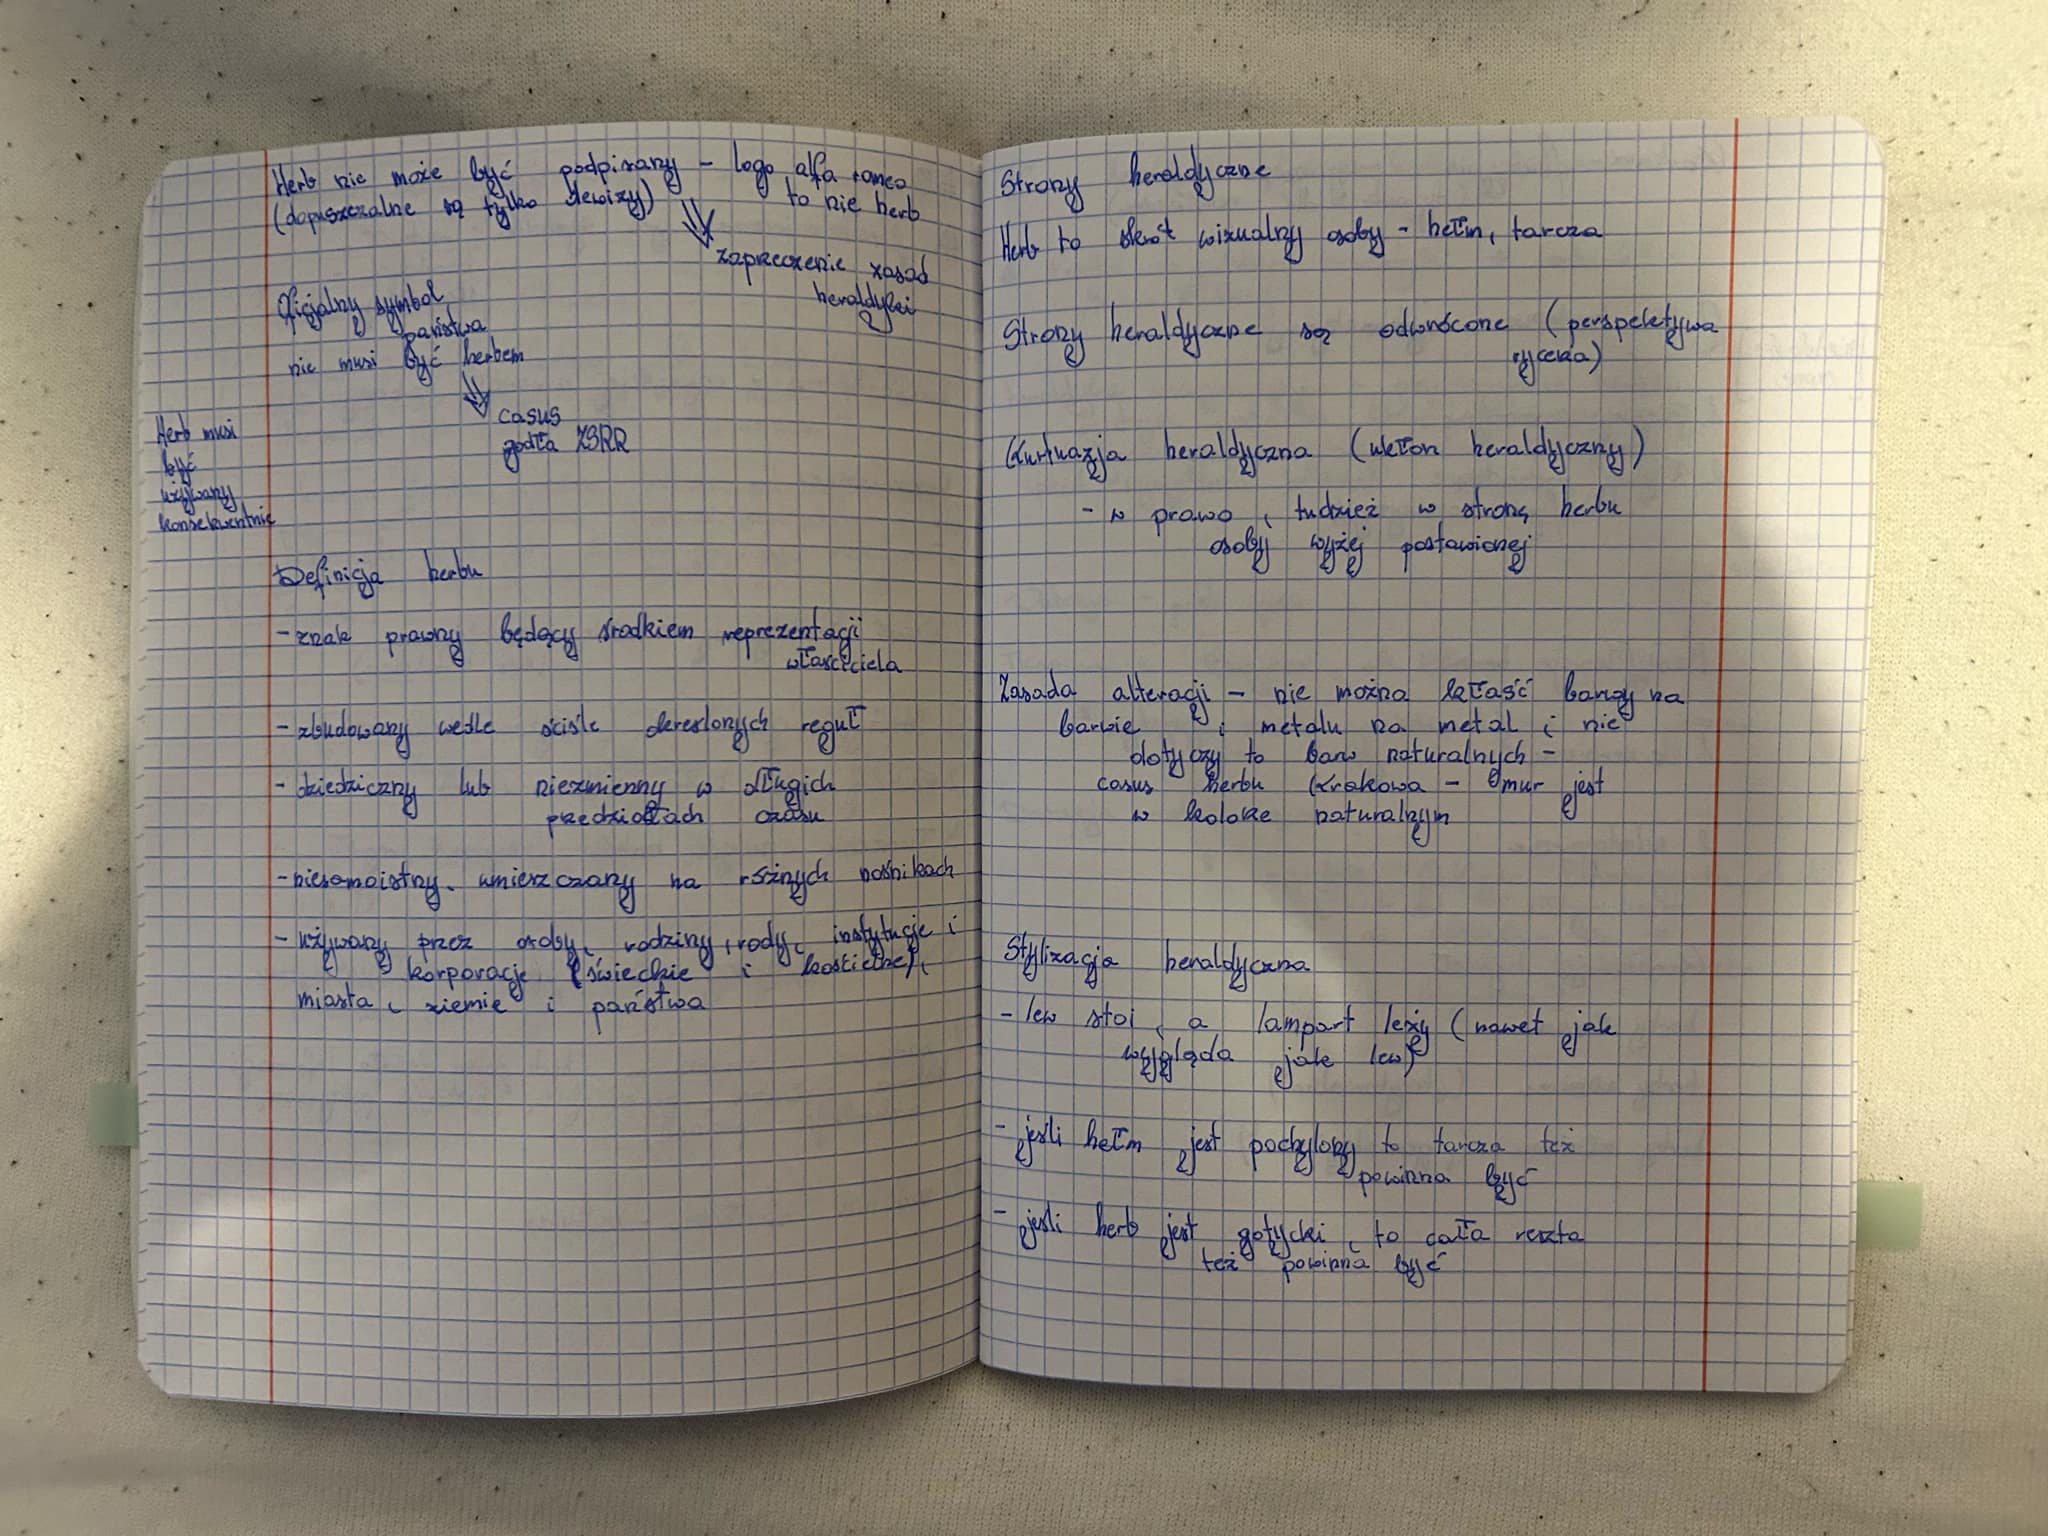 Herb nie może być podpisany - logo alfa romeo
(dopuszczalne są tylko dewizy) to nie herb
zaprzeczenie zasad
heraldyki
Oficjalny symbol
państwa
nie musi być herbem
casus
godła ZSRR
Herb musi
być
używany
konsekwentnie
Definicja herbu
- znak prawny będący środkiem reprezentacji
właściciela
- zbudowany wedle ściśle określonych reguł
- dziedziczny lub niezmienny w długich
przedziałach czasu
- niesamoistny, umieszczany na różnych nośnikach
- używany przez osoby, rodziny, rody, instytucje i
korporacje (świeckie i kościelne),
miasta, ziemie i państwa
Strony heraldyczne
Herb to skrót wizualny osoby - hełm, tarcza
Strony heraldyczne są odwrócone (perspektywa
rycerza)
Kurtuazja heraldyczna (ukłon heraldyczny)
- w prawo, tudzież w stronę herbu
osoby wyżej postawionej
Zasada alteracji - nie można kłaść barwy na
barwie i metalu na metal i nie
dotyczy to barw naturalnych -
casus herbu Krakowa - mur jest
w kolorze naturalnym
Stylizacja heraldyczna
- lew stoi, a lampart leży (nawet jak
wygląda jak lew)
- jeśli hełm jest pochylony to tarcza też
powinna być
- jeśli herb jest gotycki, to cała reszta
też powinna być